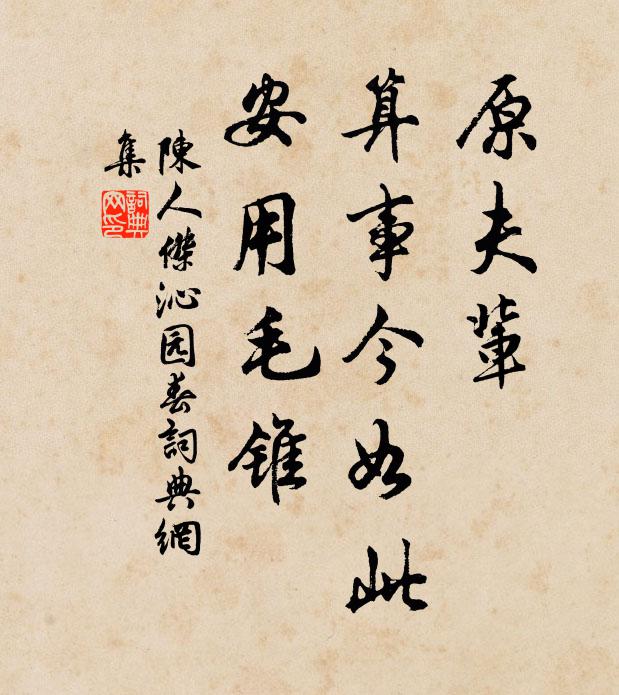 原夫輩
算事今如此
安用毛錐
陳人傑沁园春詞典網
集
詞典
网印